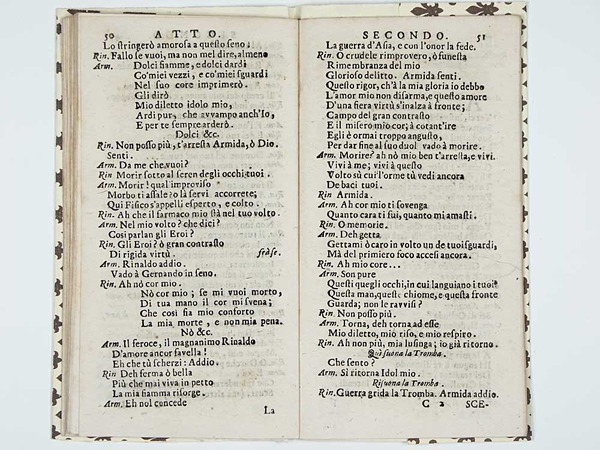 50 ATTO.
Lo stringerò amorosa a questo seno.
Rin. Fallo se vuoi, ma non mel dire, almeno
Arm. Dolci fiamme, e dolci dardi
Co'miei vezzi, e co'miei sguardi
Nel suo core imprimerò.
Gli dirò
Mio diletto idolo mio,
Ardi pur, che avvampo anch'Io,
E per te sempre arderò.
Dolci &c.
Rin. Non posso più, t'arresta Armida, ò Dio.
Senti.
Arm. Da me che vuoi?
Rin Morir sotto al seren degli occhi tuoi.
Arm. Morir! qual improviso
Morbo ti assale? o là servi accorrete;
Qui Fisico s'appelli esperto, e colto.
Rin. Ah che il farmaco mio stà nel tuo volto.
Arm. Nel mio volto? che dici?
Cosi parlan gli Eroi?
Rin. Gli Eroi? ò gran contrasto
Di rigida virtù. fràse.
Arm. Rinaldo addio.
Vado à Gernando in seno.
Rin. Ah nò cor mio.
Nò cor mio; se mi vuoi morto,
Di tua mano il cor mi svena;
Che cosi fia mio conforto
La mia morte, e non mia pena.
Nò &c.
Arm. Il feroce, il magnanimo Rinaldo
D'amore ancor favella!
Eh che tù scherzi: Addio.
Rin Deh ferma ò bella
Più che mai viva in petto
La mia fiamma risorge.
Arm. Eh nol concede
La
SECONDO. 51
La guerra d'Asia, e con l'onor la fede.
Rin. O crudele rimprovero, ò funesta
Rimembranza del mio
Glorioso delitto. Armida senti.
Questo rigor, ch'à la mia gloria io debbo
L'amor mio non disarma, e questo amore
D'una fiera virtù s'inalza à fronte;
Campo del gran contrasto
E il misero mio cor; à cotant'ire
Egli è ormai troppo angusto,
Per dar fine al suo duol vado à morire.
Arm. Morire? ah nò mio ben t'arresta, e vivi.
Vivi à me; vivi à questo
Volto sù cui l'orme tù vedi ancora
De baci tuoi.
Rin Armida.
Arm. Ah cor mio ti sovenga
Quanto cara ti fui, quanto mi amasti.
Rin. O memorie.
Arm. Deh getta
Gettami ò caro in volto un de tuoi sguardi,
Mà del primero foco accesi ancora.
Rin. Ah mio core...
Arm. Son pure
Questi quegli occhi, in cui languiano i tuoi?
Questa man, queste chiome, e questa fronte
Guarda; non le ravvisi?
Rin. Non posso più.
Arm. Torna, deh torna ad esse
Mio diletto, mio riso, e mio respiro.
Rin. Ah non più, mia lusinga; io già ritorno.
Quì suona la Tromba.
Che sento?
Arm. Sì ritorna Idol mio.
Risuona la Tromba.
Rin. Guerra grida la Tromba. Armida addio.
C 2 SCE-